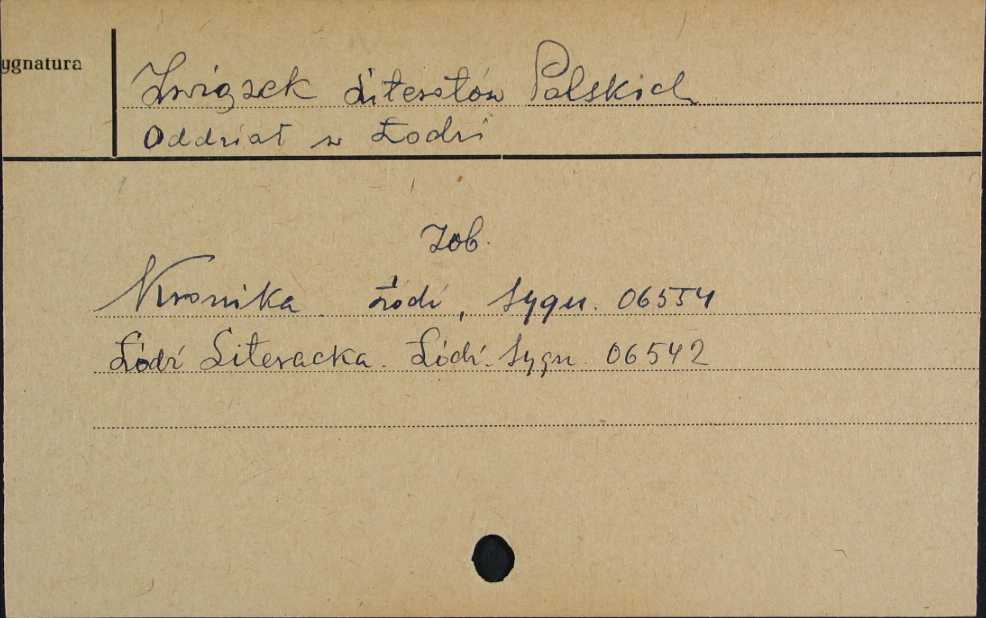 ygnatura
Związek Literatów Polskich
Oddział w Łodzi
Zob.
Kronika. Łódź, Sygn. 06554
Łódź Literacka. Łódź. Sygn. 06542